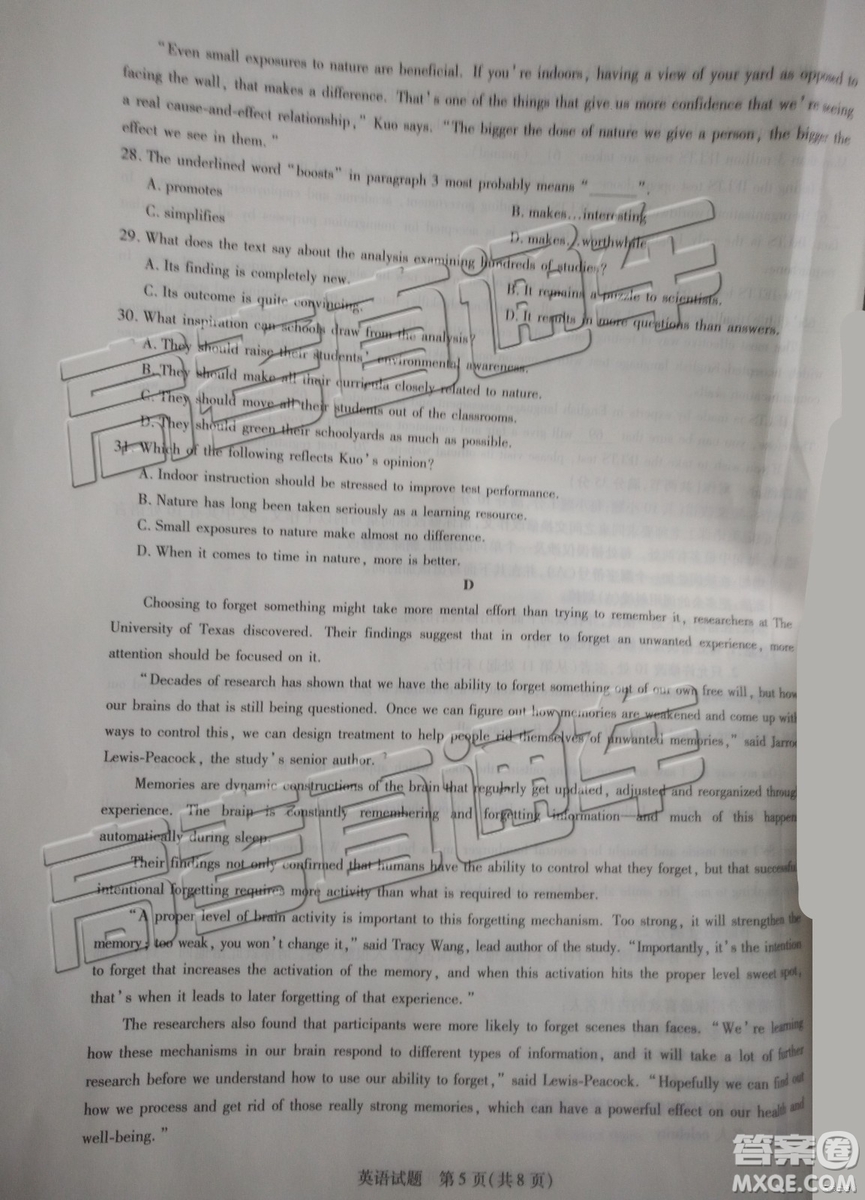 "Even small exposures to nature are beneficial. If you're indoors, having a view of your yard as opposed to
facing the wall, that makes a difference. That's one of the things that give us more confidence that we're seeing
a real cause-and-effect relationship," Kuo says. "The bigger the dose of nature we give a person, the bigger the
effect we see in them."
28. The underlined word "boosts" in paragraph 3 most probably means "______".
A. promotes
B. makes...interesting
C. simplifies
D. makes...worthwhile
29. What does the text say about the analysis examining hundreds of studies?
A. Its finding is completely new.
B. It remains a puzzle to scientists.
C. Its outcome is quite convincing.
D. It results in more questions than answers.
30. What inspiration can schools draw from the analysis?
A. They should raise their students' environmental awareness.
B. They should make all their curricula closely related to nature.
C. They should move all their students out of the classrooms.
D. They should green their schoolyards as much as possible.
31. Which of the following reflects Kuo's opinion?
A. Indoor instruction should be stressed to improve test performance.
B. Nature has long been taken seriously as a learning resource.
C. Small exposures to nature make almost no difference.
D. When it comes to time in nature, more is better.
D
Choosing to forget something might take more mental effort than trying to remember it, researchers at The
University of Texas discovered. Their findings suggest that in order to forget an unwanted experience, more
attention should be focused on it.
"Decades of research has shown that we have the ability to forget something out of our own free will, but how
our brains do that is still being questioned. Once we can figure out how memories are weakened and come up with
ways to control this, we can design treatment to help people rid themselves of unwanted memories," said Jarrod
Lewis-Peacock, the study's senior author.
Memories are dynamic constructions of the brain that regularly get updated, adjusted and reorganized through
experience. The brain is constantly remembering and forgetting information—and much of this happens
automatically during sleep.
Their findings not only confirmed that humans have the ability to control what they forget, but that successful
intentional forgetting requires more activity than what is required to remember.
"A proper level of brain activity is important to this forgetting mechanism. Too strong, it will strengthen the
memory; too weak, you won't change it," said Tracy Wang, lead author of the study. "Importantly, it's the intention
to forget that increases the activation of the memory, and when this activation hits the proper level sweet spot,
that's when it leads to later forgetting of that experience."
The researchers also found that participants were more likely to forget scenes than faces. "We're learning
how these mechanisms in our brain respond to different types of information, and it will take a lot of further
research before we understand how to use our ability to forget," said Lewis-Peacock. "Hopefully we can find out
how we process and get rid of those really strong memories, which can have a powerful effect on our health and
well-being."
英语试题 第5页(共8页)
高考直通车
高考直通车
答案圈
MXQE.COM